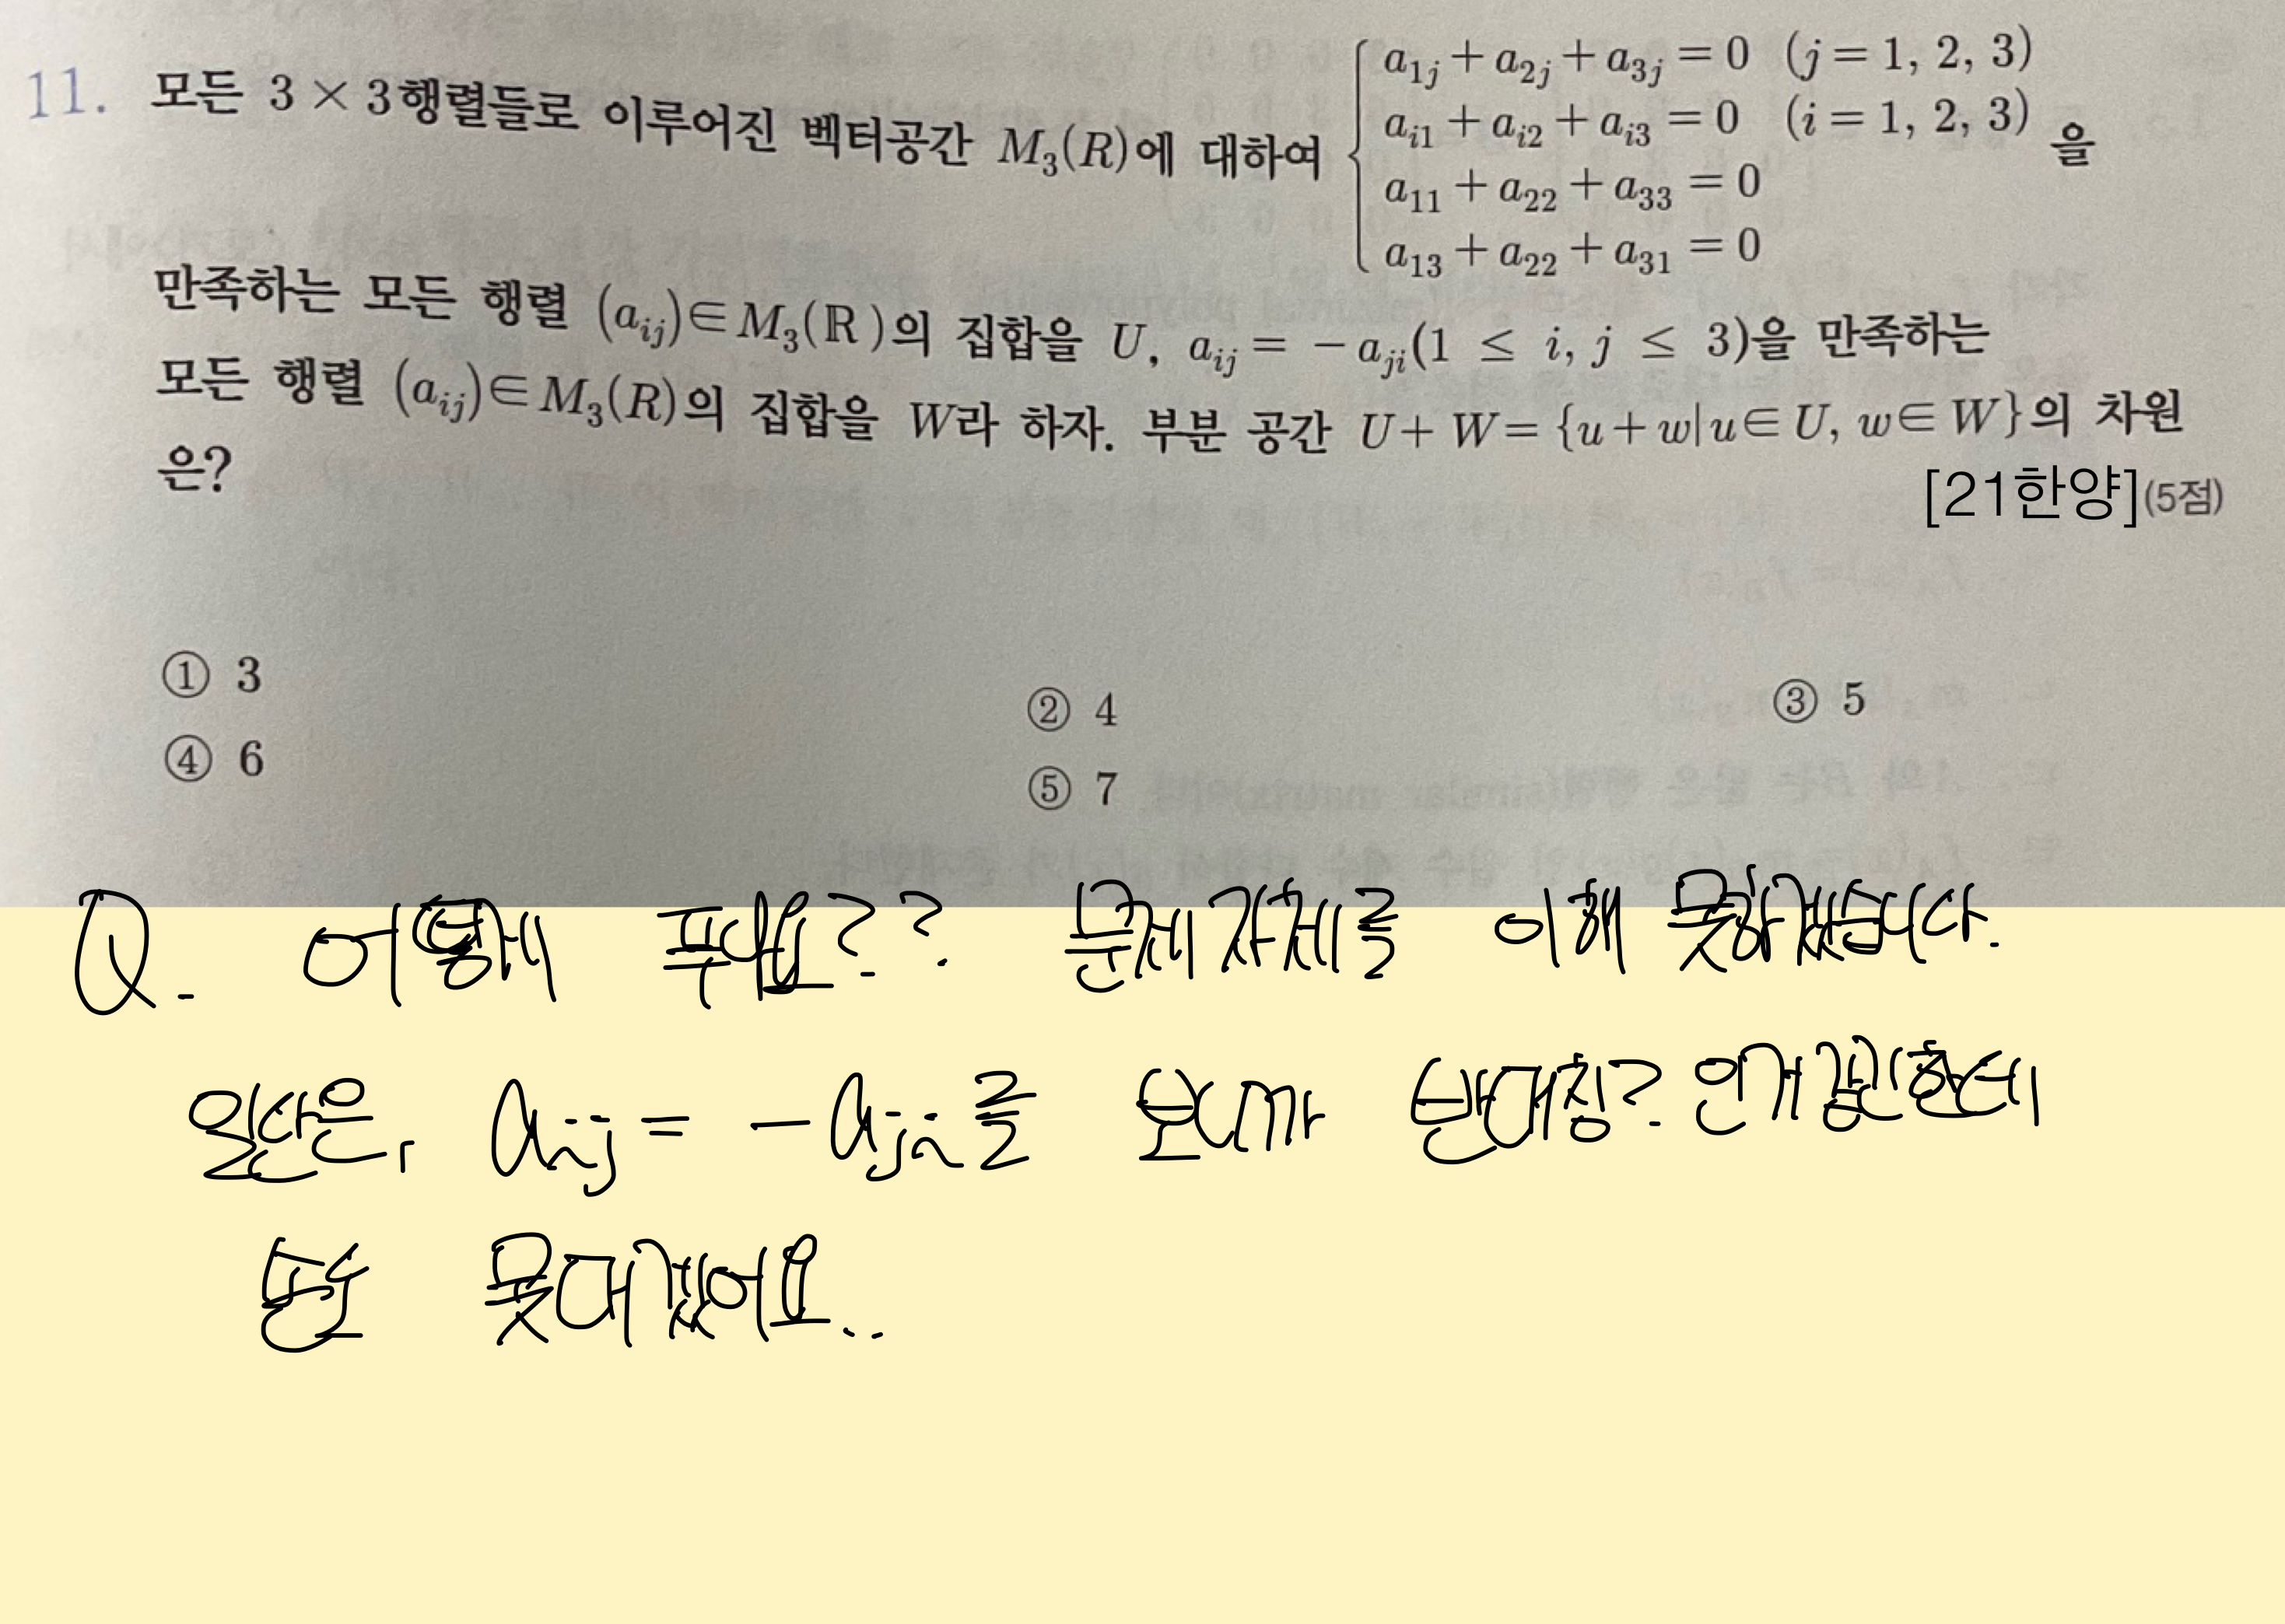 11. 모든 3 × 3행렬들로 이루어진 벡터공간 M₃(R)에 대하여 { a₁ⱼ + a₂ⱼ + a₃ⱼ = 0 (j = 1, 2, 3)
aᵢ₁ + aᵢ₂ + aᵢ₃ = 0 (i = 1, 2, 3) 을
a₁₁ + a₂₂ + a₃₃ = 0
a₁₃ + a₂₂ + a₃₁ = 0
만족하는 모든 행렬 (aᵢⱼ)∈M₃(ℝ)의 집합을 U, aᵢⱼ = −aⱼᵢ(1 ≤ i, j ≤ 3)을 만족하는
모든 행렬 (aᵢⱼ)∈M₃(R)의 집합을 W라 하자. 부분 공간 U+W={u+w|u∈U, w∈W}의 차원
은?
[21한양](5점)
① 3 ② 4 ③ 5
④ 6 ⑤ 7
Q. 어떻게 푸나요?? 문제 자체를 이해 못하겠습니다.
일단은, aᵢⱼ = −aⱼᵢ를 보니까 반대칭? 인거 같긴한데
손도 못대겠어요..